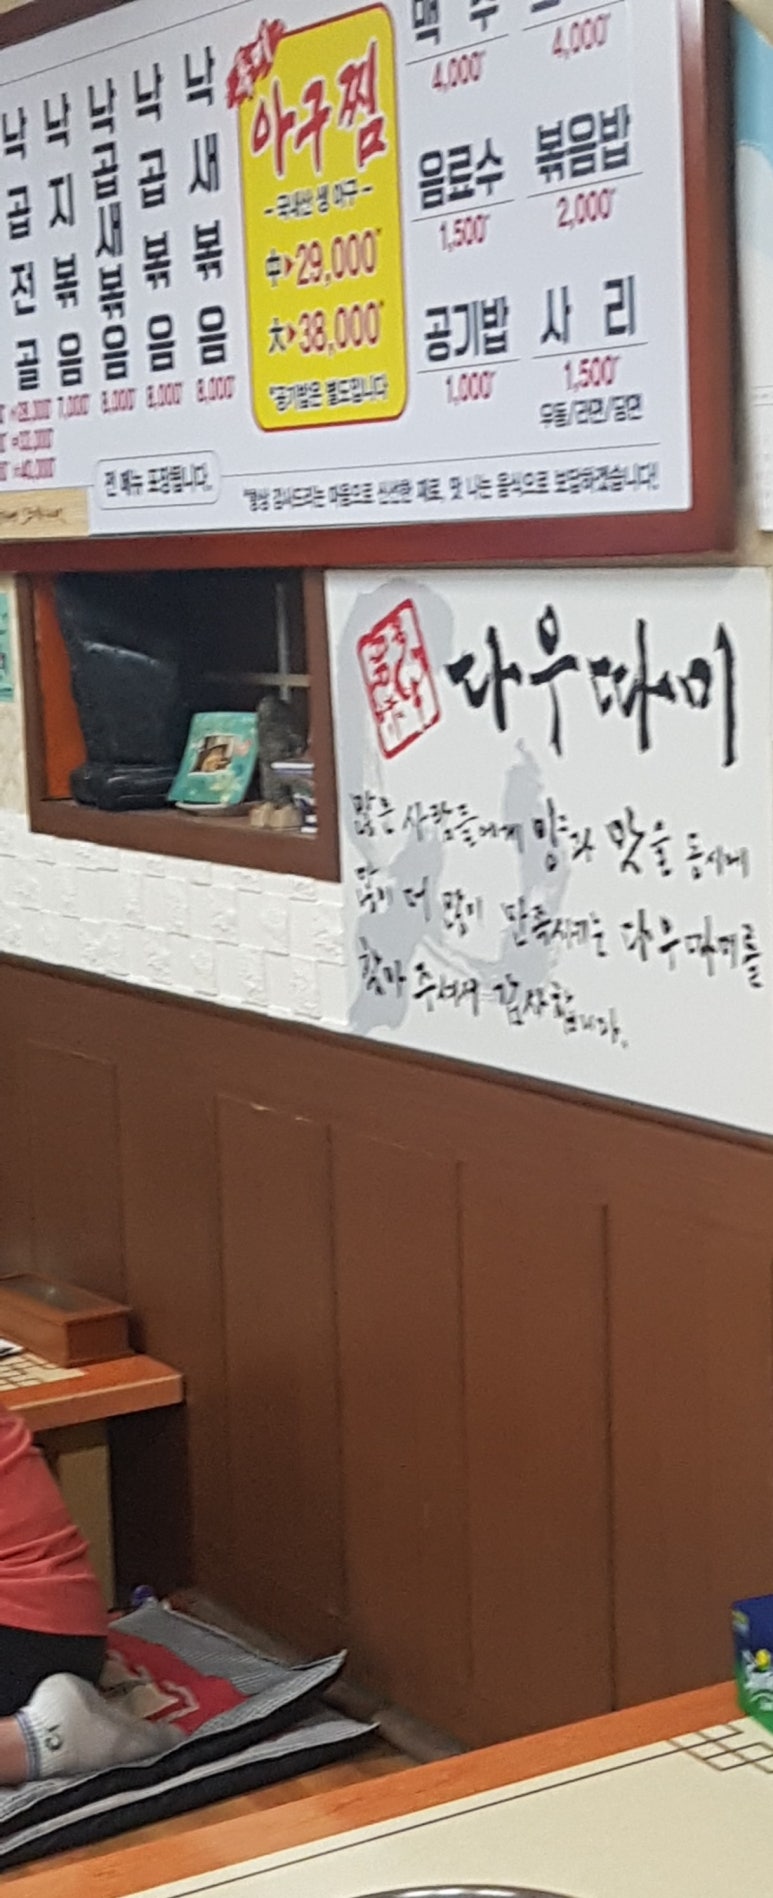 낙곱전골
낙지볶음
7,000
낙곱새볶음
8,000
낙곱볶음
8,000
낙새볶음
8,000
아구찜
- 국내산 생 아구 -
中▶29,000
大▶38,000
*공기밥은 별도입니다
맥주
4,000
4,000
음료수
1,500
볶음밥
2,000
공기밥
1,000
사리
1,500
우동/라면/당면
전 메뉴 포장됩니다.
"항상 감사드리는 마음으로 신선한 재료, 맛 나는 음식으로 보답하겠습니다!
다우따미
많은 사람들에게 양과 맛을 동시에
많이 더 많이 만족시키는 다우따미를
찾아 주셔서 감사합니다.